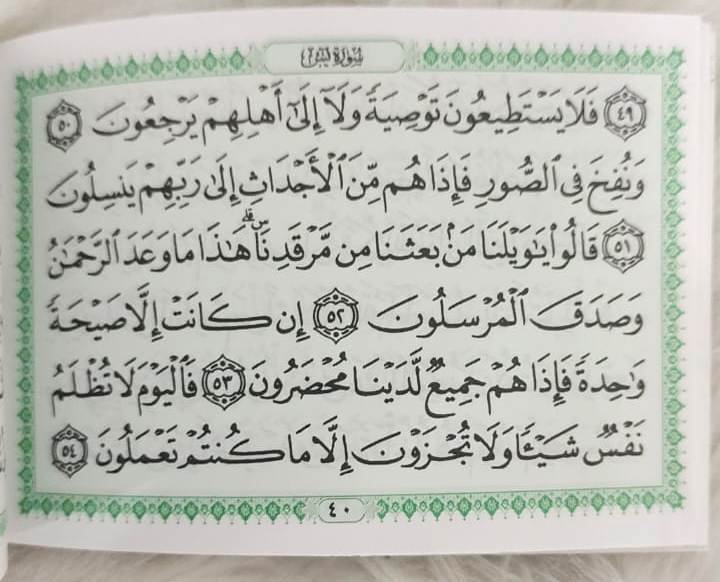 سُورَةُ يسٓ
﴿٤٩﴾ فَلَا يَسْتَطِيعُونَ تَوْصِيَةً وَلَآ إِلَىٰٓ أَهْلِهِمْ يَرْجِعُونَ ﴿٥٠﴾
وَنُفِخَ فِى ٱلصُّورِ فَإِذَا هُم مِّنَ ٱلْأَجْدَاثِ إِلَىٰ رَبِّهِمْ يَنسِلُونَ
﴿٥١﴾ قَالُوا۟ يَٰوَيْلَنَا مَنۢ بَعَثَنَا مِن مَّرْقَدِنَا ۜ ۗ هَٰذَا مَا وَعَدَ ٱلرَّحْمَٰنُ
وَصَدَقَ ٱلْمُرْسَلُونَ ﴿٥٢﴾ إِن كَانَتْ إِلَّا صَيْحَةً
وَٰحِدَةً فَإِذَا هُمْ جَمِيعٌ لَّدَيْنَا مُحْضَرُونَ ﴿٥٣﴾ فَٱلْيَوْمَ لَا تُظْلَمُ
نَفْسٌ شَيْـًٔا وَلَا تُجْزَوْنَ إِلَّا مَا كُنتُمْ تَعْمَلُونَ ﴿٥٤﴾
٤٠